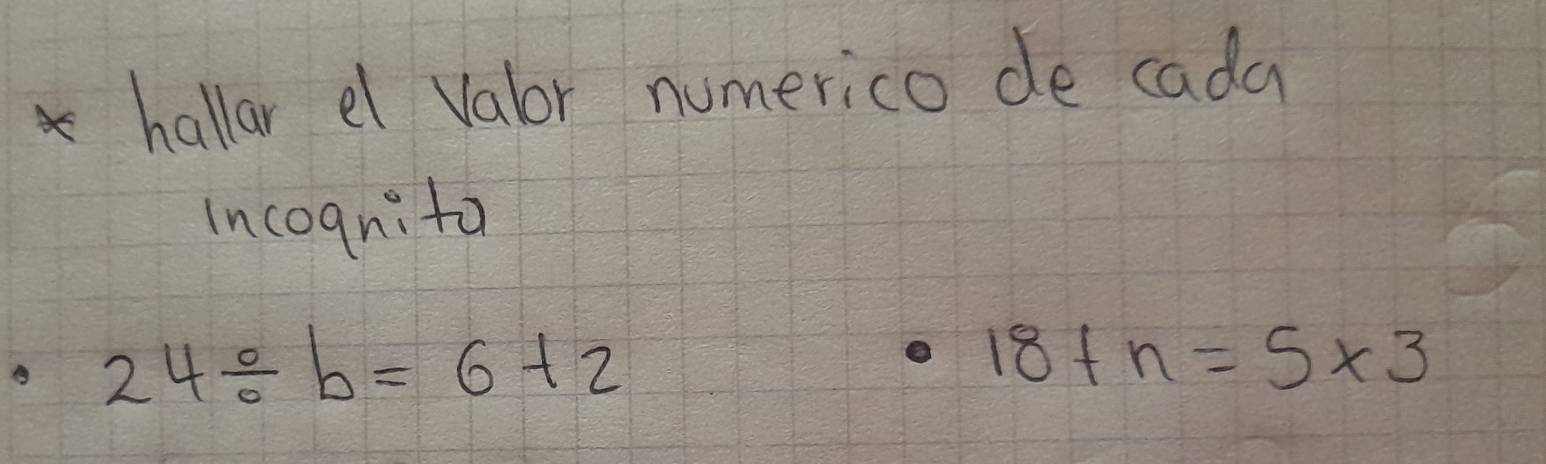 * hallar el valor numerico de cada
incognita
• 24 ÷ b = 6 + 2 • 18 + n = 5 x 3